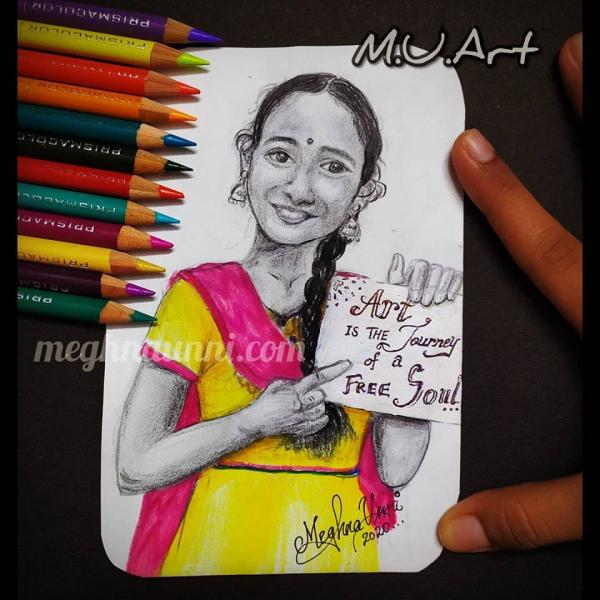 M.U.Art
PRISMACOLOR
PRISMACOLOR
PRISMACOLOR
PRISMACOLO
PRISMACO
PRISMA
PRISM
PRIS
meghnaunni.com
Art
IS THE Journey
of a
FREE Soul...
Meghna Unni
2020...